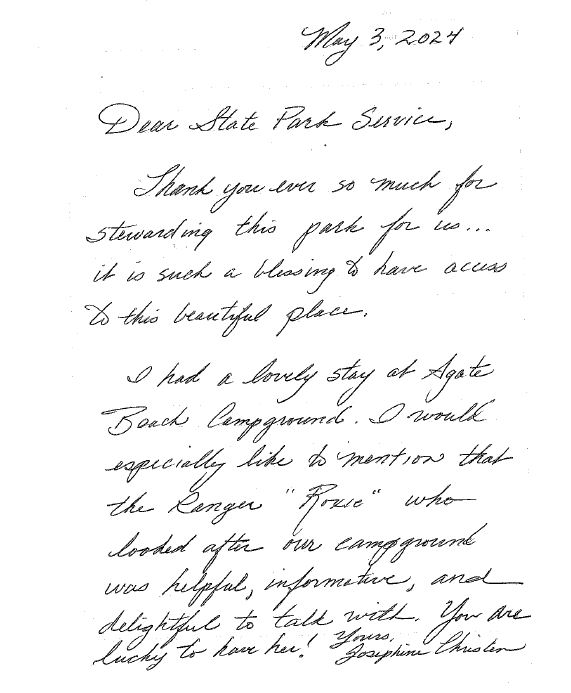 May 3, 2024
Dear State Park Service,
Thank you ever so much for
stewarding this park for us...
it is such a blessing to have access
to this beautiful place.
I had a lovely stay at Agate
Beach Campground. I would
especially like to mention that
the Ranger "Roxie" who
looked after our campground
was helpful, informative, and
delightful to talk with. You are
lucky to have her! Yours,
Josephine Christen